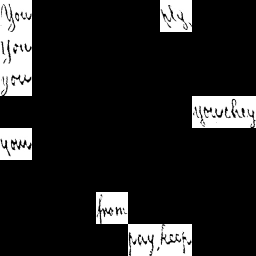 You ply.
You
you
you they
your
from
pay, keep